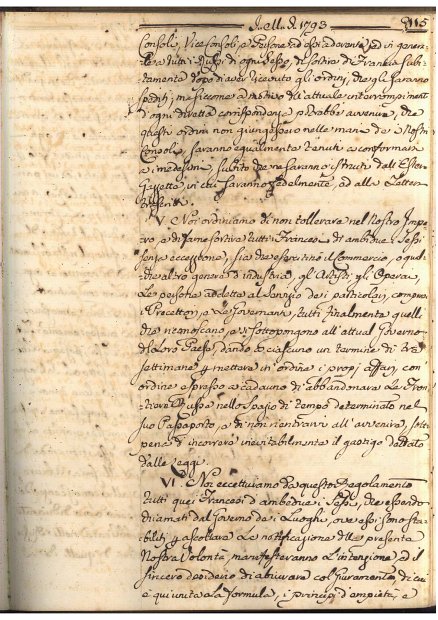 d. all. d. 1793.
115
Consoli, Vice Consoli, e Persone ad essi aderenti, ed in genera-
le a tutti i Russi di ogni sesso, di sortire di Francia subi-
tamente dopo di aver ricevuto gli ordini, che gli saranno
spediti; ma siccome a motivo dell'attuale interrompiment
d'ogni diretta corrispondenza potrebbe avvenire, che
questi ordini non giungessero nelle mani de i Nostri
Consoli, saranno equivalmente tenuti a conformarsi
a i medesimi subito che ne saranno istruiti dalle Estere
Gazzette, in cui saranno fedelmente, ed alla Lettera
trascritti.
V. Noi ordiniamo di non tollerare nel Nostro Impe-
ro, e di farne sortire tutti i Francesi di ambidue i Sessi
senza eccezione, sia che esercitino il Commercio, o qual-
che altro genere d'industria, gli Artisti, gli Operai,
Le persone addette al Servizio de i particolari, come
i Precettori, e Le Governanti, tutti finalmente quelli
che riconoscano, e si sottopongono all'attual Governo
del Loro Paese, dando a ciascuno un termine di tre
settimane p mettere in ordine i propj affari, con
ordine espresso a cadauno di abbandonare Le Fron-
tiere Russe nello Spazio di tempo determinato nel
suo Passaporto, e di non rientrarvi all'avvenire, sotto
pena di incorrere inevitabilmente il gastigo dettato
dalle Leggi.
VI. Noi eccettuiamo da questo Regolamento
tutti quei Francesi d'ambedue i Sessi, che essendo
chiamati dal Governo de i Luoghi, ove essi sono sta-
biliti p ascoltare Le notificazione della presente
Nostra Volontà, manifesteranno L'intenzione, ed il
sincero desiderio di abiurare col Giuramento, di cui
è qui unita La formula, i principj d'empietà, e